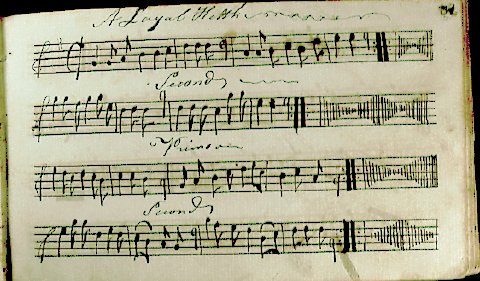 A Loyal Health
Second
Primo
Second